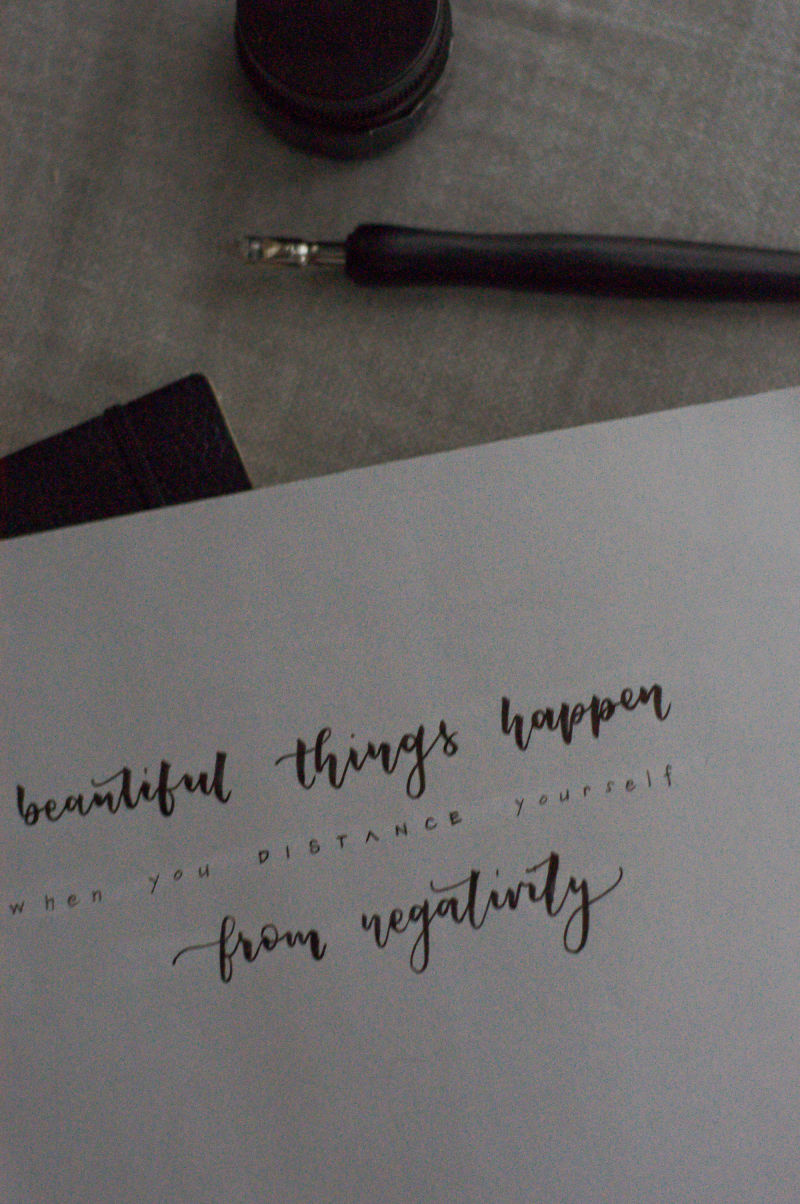 beautiful things happen
when you DISTANCE yourself
from negativity